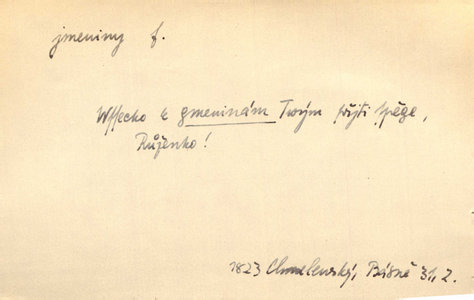 jmeniny f.
Wssecko k gmeninám Twým přjti spěge,
Růžěnko!
1823 Chmelenský, Básně 31, 2.